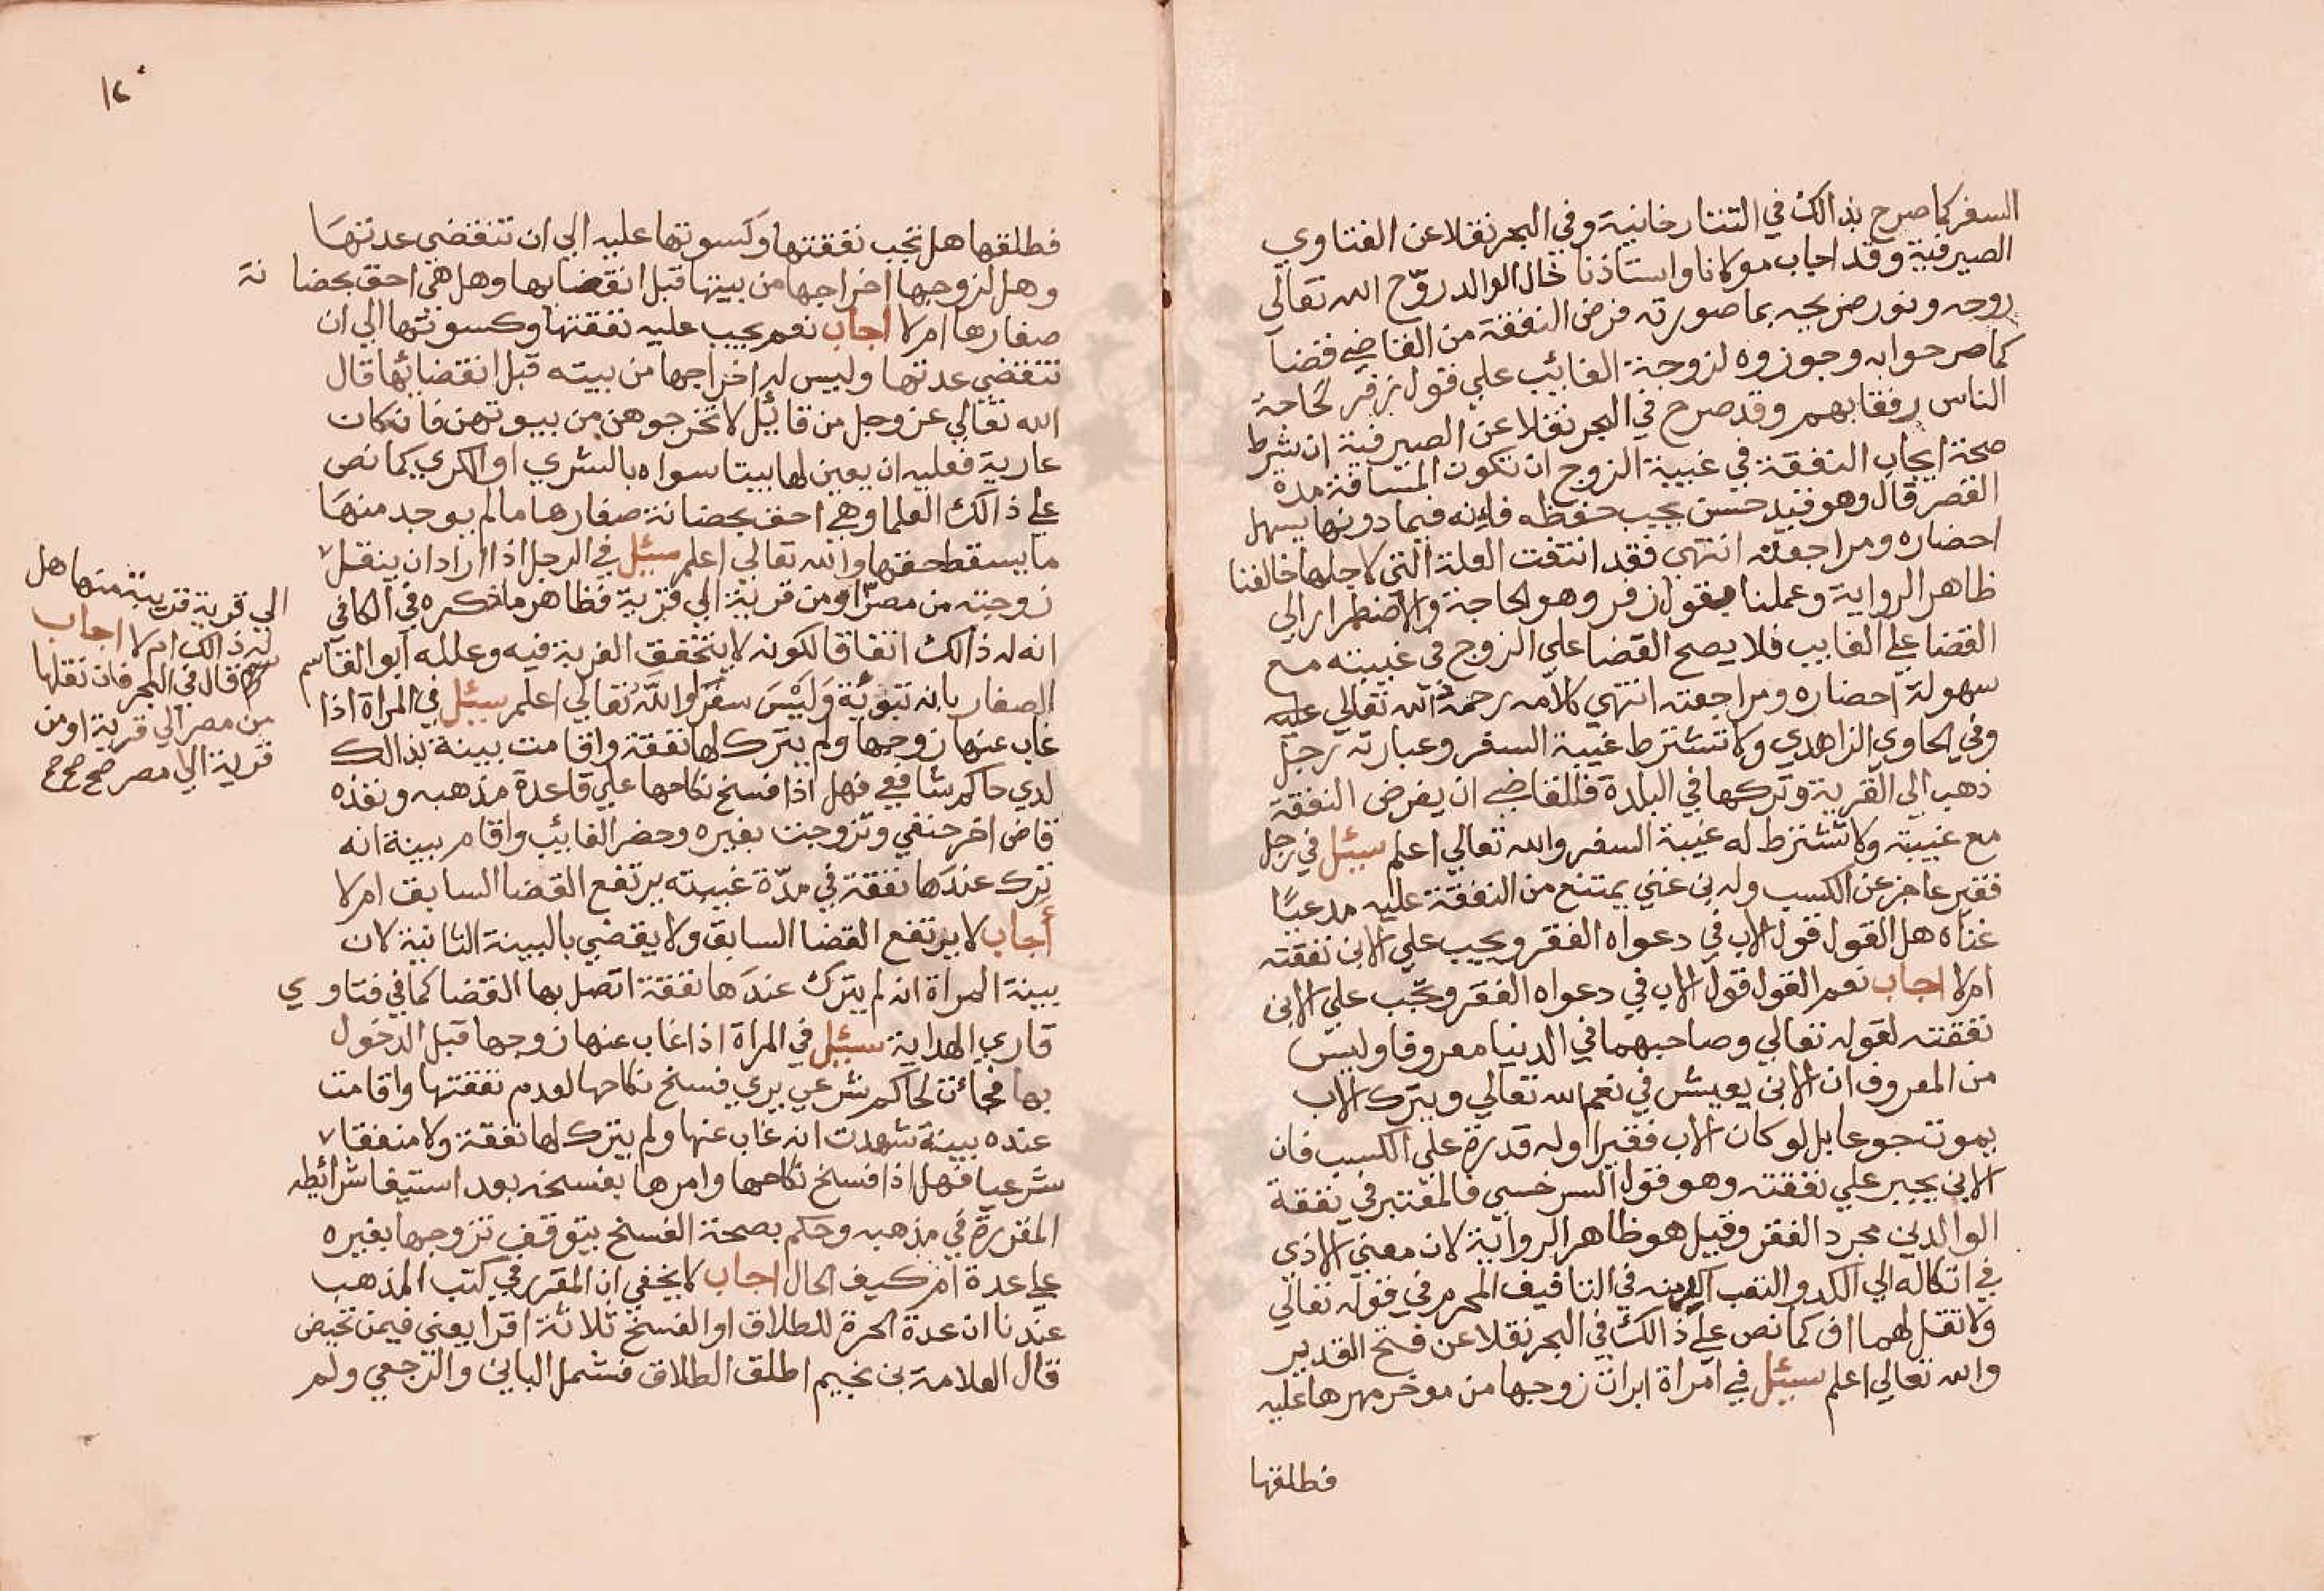 السفر كما صرح بذالك في التتارخانية وفي البحر نقلا عن الفتاوي
الصيرفية وقد اجاب مولانا واستاذنا خال الوالد روّح الله تعالي
روحه ونور ضريحه بما صورته فرض النفقة من القاضي قضا
كما صرحوا به وجوزوه لزوجة الغائب علي قول زفر لحاجة
الناس رفقا بهم وقد صرح في البحر نقلا عن الصيرفية ان شرط
صحة ايجاب النفقة في غيبة الزوج ان تكون المسافة مدة
القصر قال وهو قيد حسن يجب حفظه فانه فيما دونها يسهل
احضاره ومراجعته انتهي فقد انتفت العلة التي لاجلها خالفنا
ظاهر الرواية وعملنا بقول زفر وهو الحاجة والاضطرار الي
القضا علي الغايب فلا يصح القضا علي الزوج في غيبته مع
سهولة احضاره ومراجعته انتهي كلامه رحمة الله تعالي عليه
وفي الحاوي الزاهدي ولا تشترط غيبة السفر وعبارته رجل
ذهب الي القرية وتركها في البلدة فللقاضي ان يفرض النفقة
مع غيبته ولا تشترط له غيبة السفر والله تعالي اعلم سيئل في رجل
فقير عاجز عن الكسب وله بن غني يمتنع من النفقة عليه مدعيًا
غناه هل القول قول الاب في دعواه الفقر ويجب علي الابن نفقته
ام لا اجاب نعم القول قول الاب في دعواه الفقر وتجب علي الابن
نفقته لقوله تعالي وصاحبهما في الدنيا معروفا وليس
من المعروف ان الابن يعيش في نعم الله تعالي ويترك الاب
يموت جوعا بل لو كان الاب فقيرا وله قدرة علي الكسب فان
الابن يجبر علي نفقته وهو قول السرخسي فالمعتبر في نفقة
الوالدين مجرد الفقر وقيل هو ظاهر الرواية لان معني الاذي
في اتكاله الي الكد والتعب اكثر منه في التافيف المحرم في قوله تعالي
ولا تقل لهما اف كما نص علي ذالك في البحر نقلا عن فتح القدير
والله تعالي اعلم سيئل في امراة ابرات زوجها من موخر مهرها عليه
فطلقها
١٢٠
فطلقها هل تجب نفقتها وكسوتها عليه الي ان تنقضي عدتها
وهل لزوجها اخراجها من بيتها قبل انقضايها وهل هي احق بحضانة
صغارها ام لا اجاب نعم يجب عليه نفقتها وكسوتها الي ان
تنقضي عدتها وليس له اخراجها من بيته قبل انقضائها قال
الله تعالي عز وجل من قائيل لا تخرجوهن من بيوتهن فان كان
عارية فعليه ان يعين لها بيتا سواه بالشري او الكري كما نص
علي ذالك العلما وهي احق بحضانة صغارها ما لم يوجد منها
ما يسقط حقها والله تعالي اعلم سيئل في الرجل اذا اراد ان ينقل
زوجته من مصر او من قرية الي قرية فظاهر ما ذكره في الكافي
انه له ذالك اتفاقا لكونه لا يتحقق الغربة فيه وعلله ابو القاسم
الصفار بانه تبوئة وليس سفرا والله تعالي اعلم سيئل في المراة اذا
غاب عنها زوجها ولم يترك لها نفقة واقامت بينة بذالك
لدي حاكم شافعي فهل اذا فسخ نكاحها علي قاعدة مذهبه ونفذه
قاض اخر حنفي وتزوجت بغيره وحضر الغائيب واقام بينة انه
ترك عندها نفقة في مدّة غيبته يرتفع القضا السابق ام لا
أجاب لا يرتفع القضا السابق ولا يقضي بالبينة الثانية لان
بينة المراة انه لم يترك عندها نفقة اتصل بها القضا كما في فتاوي
قاري الهداية سيئل في المراة اذا غاب عنها زوجها قبل الدخول
بها فجائت لحاكم شرعي يري فسخ نكاحها لعدم نفقتها واقامت
عنده بينة شهدت انه غاب عنها ولم يترك لها نفقة ولا منفقا
شرعيا فهل اذا فسخ نكاحها وامرها بفسخه بعد استيفا شرائطه
المقررة في مذهبه وحكم بصحة الفسخ يتوقف تزوجها بغيره
علي عدة ام كيف الحال اجاب لا يخفي ان المقرر في كتب المذهب
عندنا ان عدة الحرة للطلاق او الفسخ ثلاثة اقرا يعني فيمن تحيض
قال العلامة بن نجيم اطلق الطلاق فشمل الباين والرجعي ولم
الي قرية قريبة منها هل
له ذالك ام لا اجاب
قال في البحر فان نقلها
من مصر الي قرية او من
قرية الي مصر صح صح صح